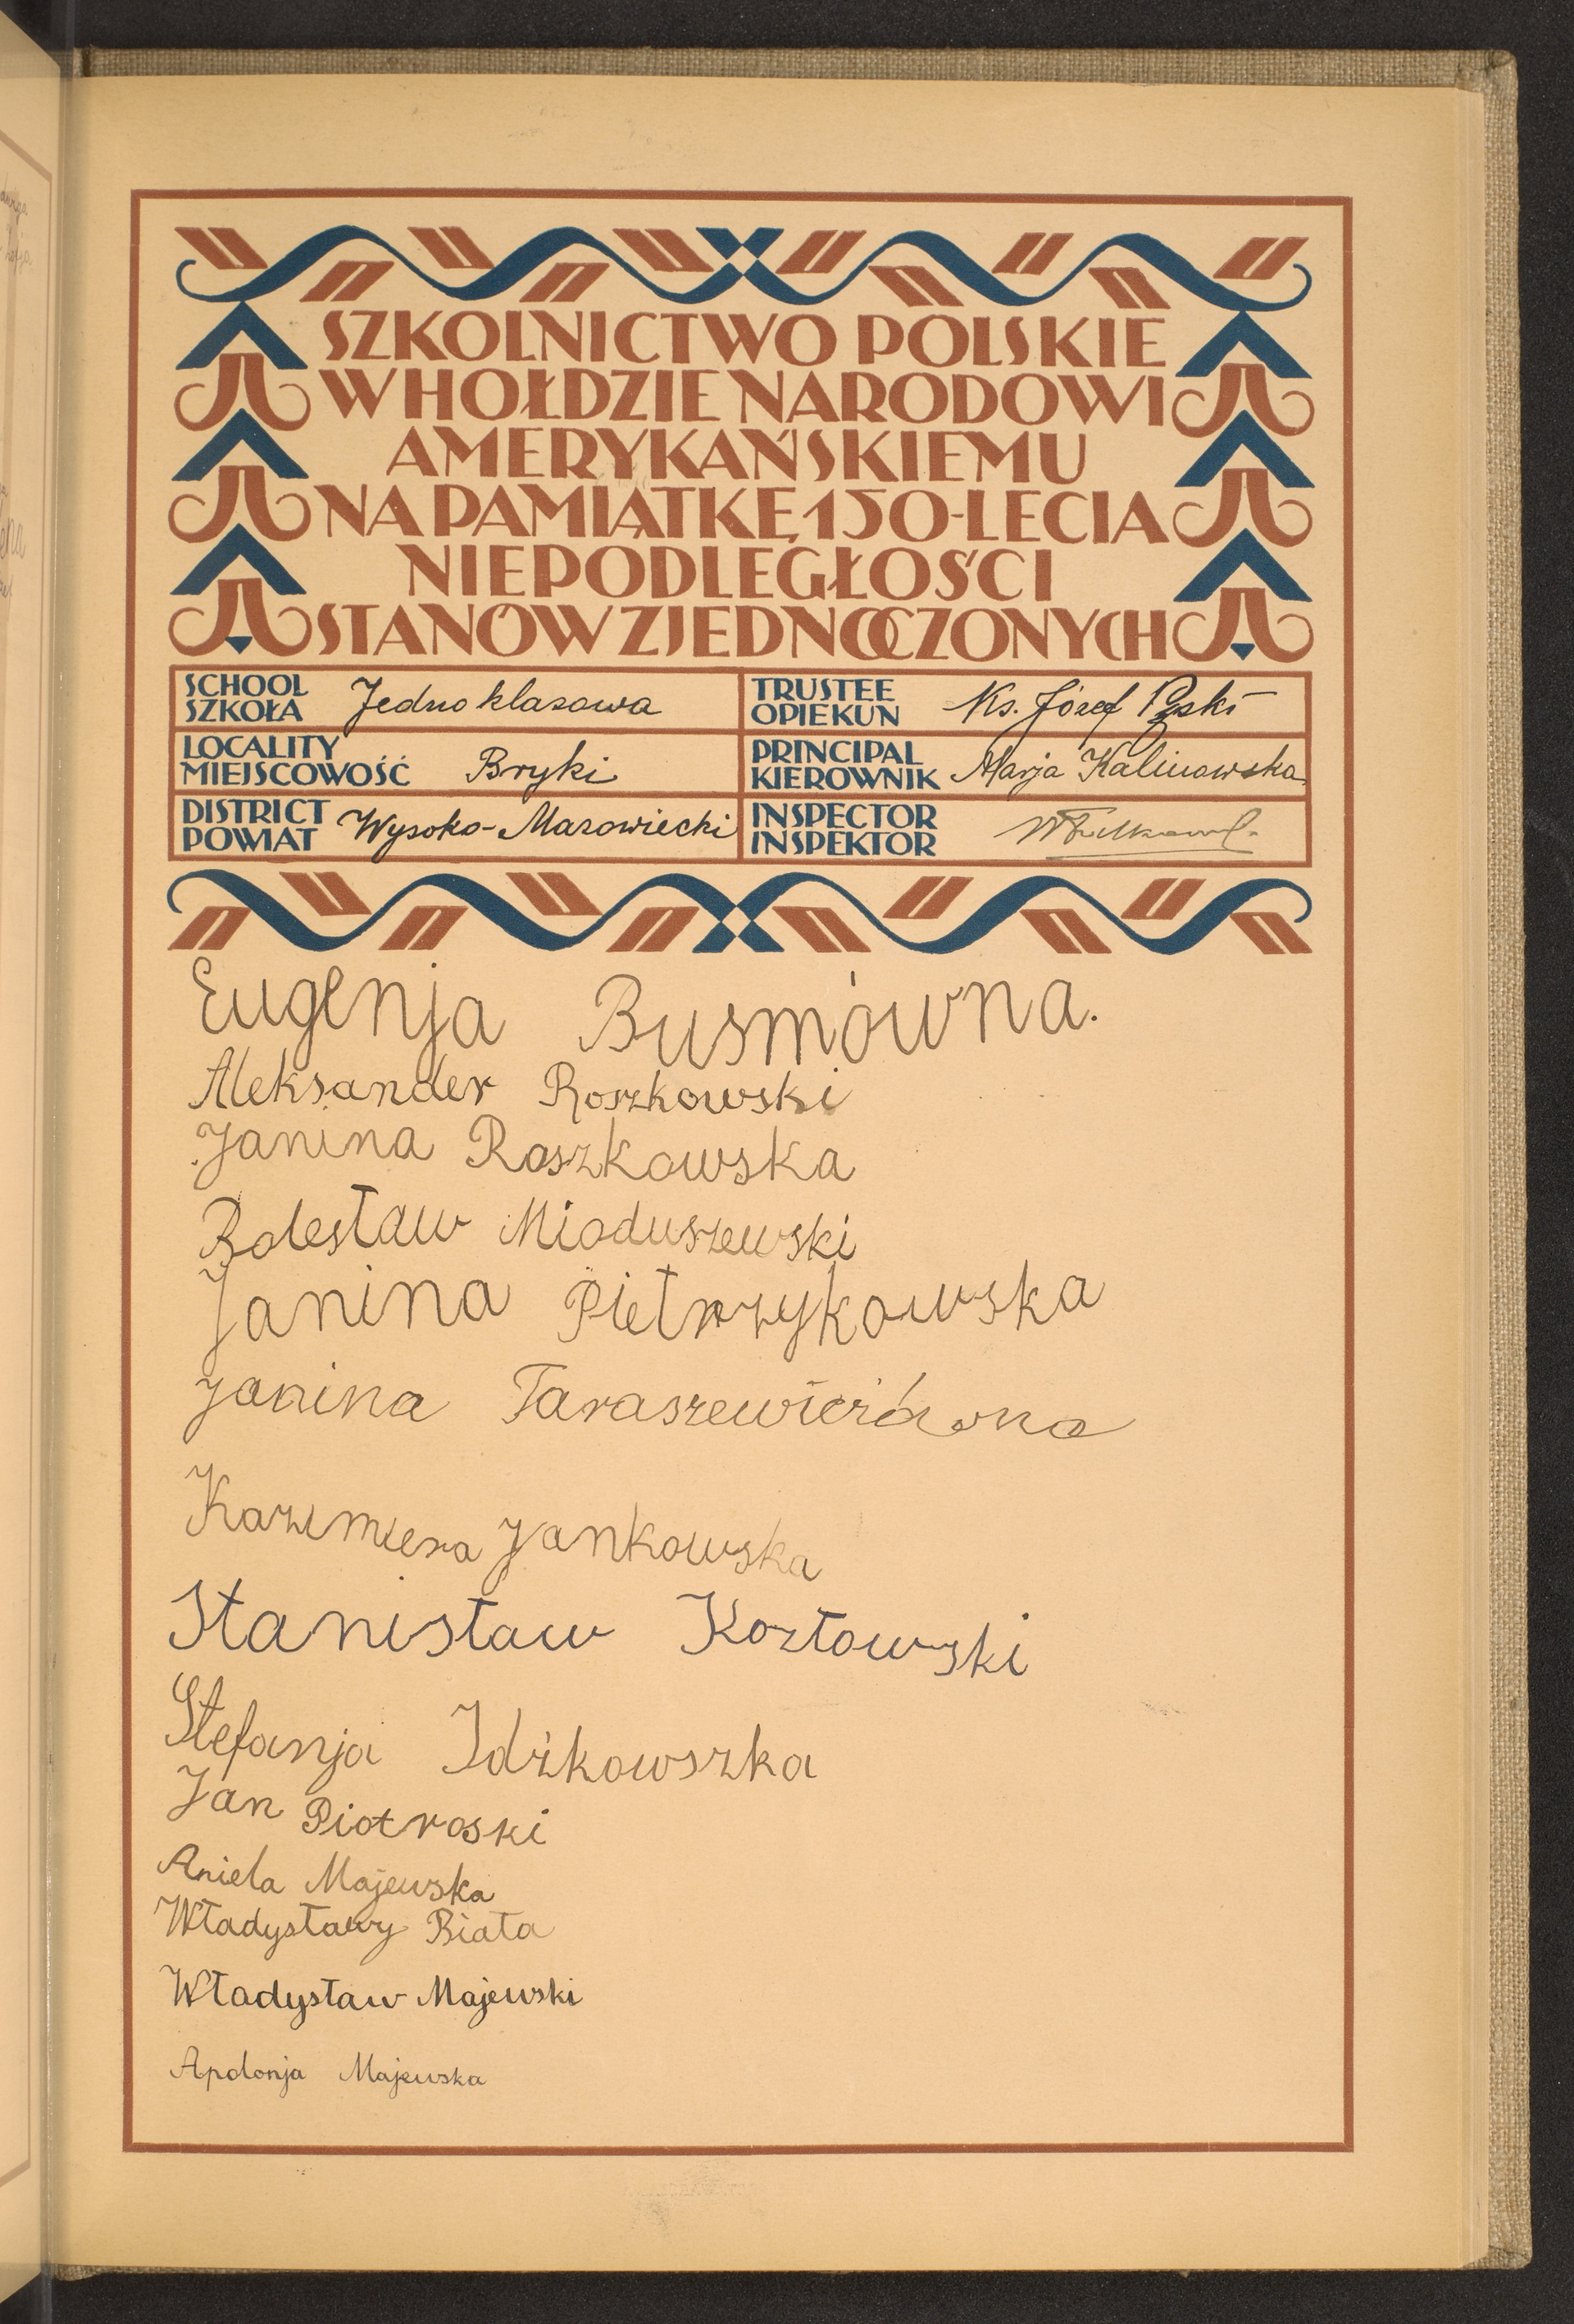 SZKOLNICTWO POLSKIE
W HOŁDZIE NARODOWI
AMERYKAŃSKIEMU
NA PAMIĄTKĘ 150-LECIA
NIEPODLEGŁOŚCI
STANÓW ZJEDNOCZONYCH
SCHOOL
SZKOŁA Jednoklasowa
TRUSTEE
OPIEKUN Ks. Józef
LOCALITY
MIEJSCOWOŚĆ Bryki
PRINCIPAL
KIEROWNIK Marja Kalinowska
DISTRICT
POWIAT Wysoko-Mazowiecki
INSPECTOR
INSPEKTOR
Eugenja Busmówna.
Aleksander Roszkowski
Janina Roszkowska
Bolesław Mioduszewski
Janina Pietrzykowska
Janina Taraszewiczówna
Kazimiera Jankowska
Stanisław Kozłowski
Stefanja Idźkowszka
Jan Piotroski
Aniela Majewska
Władysławy Biała
Władysław Majewski
Apolonja Majewska